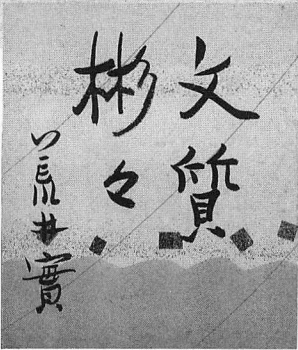 文質
彬々
荒井實